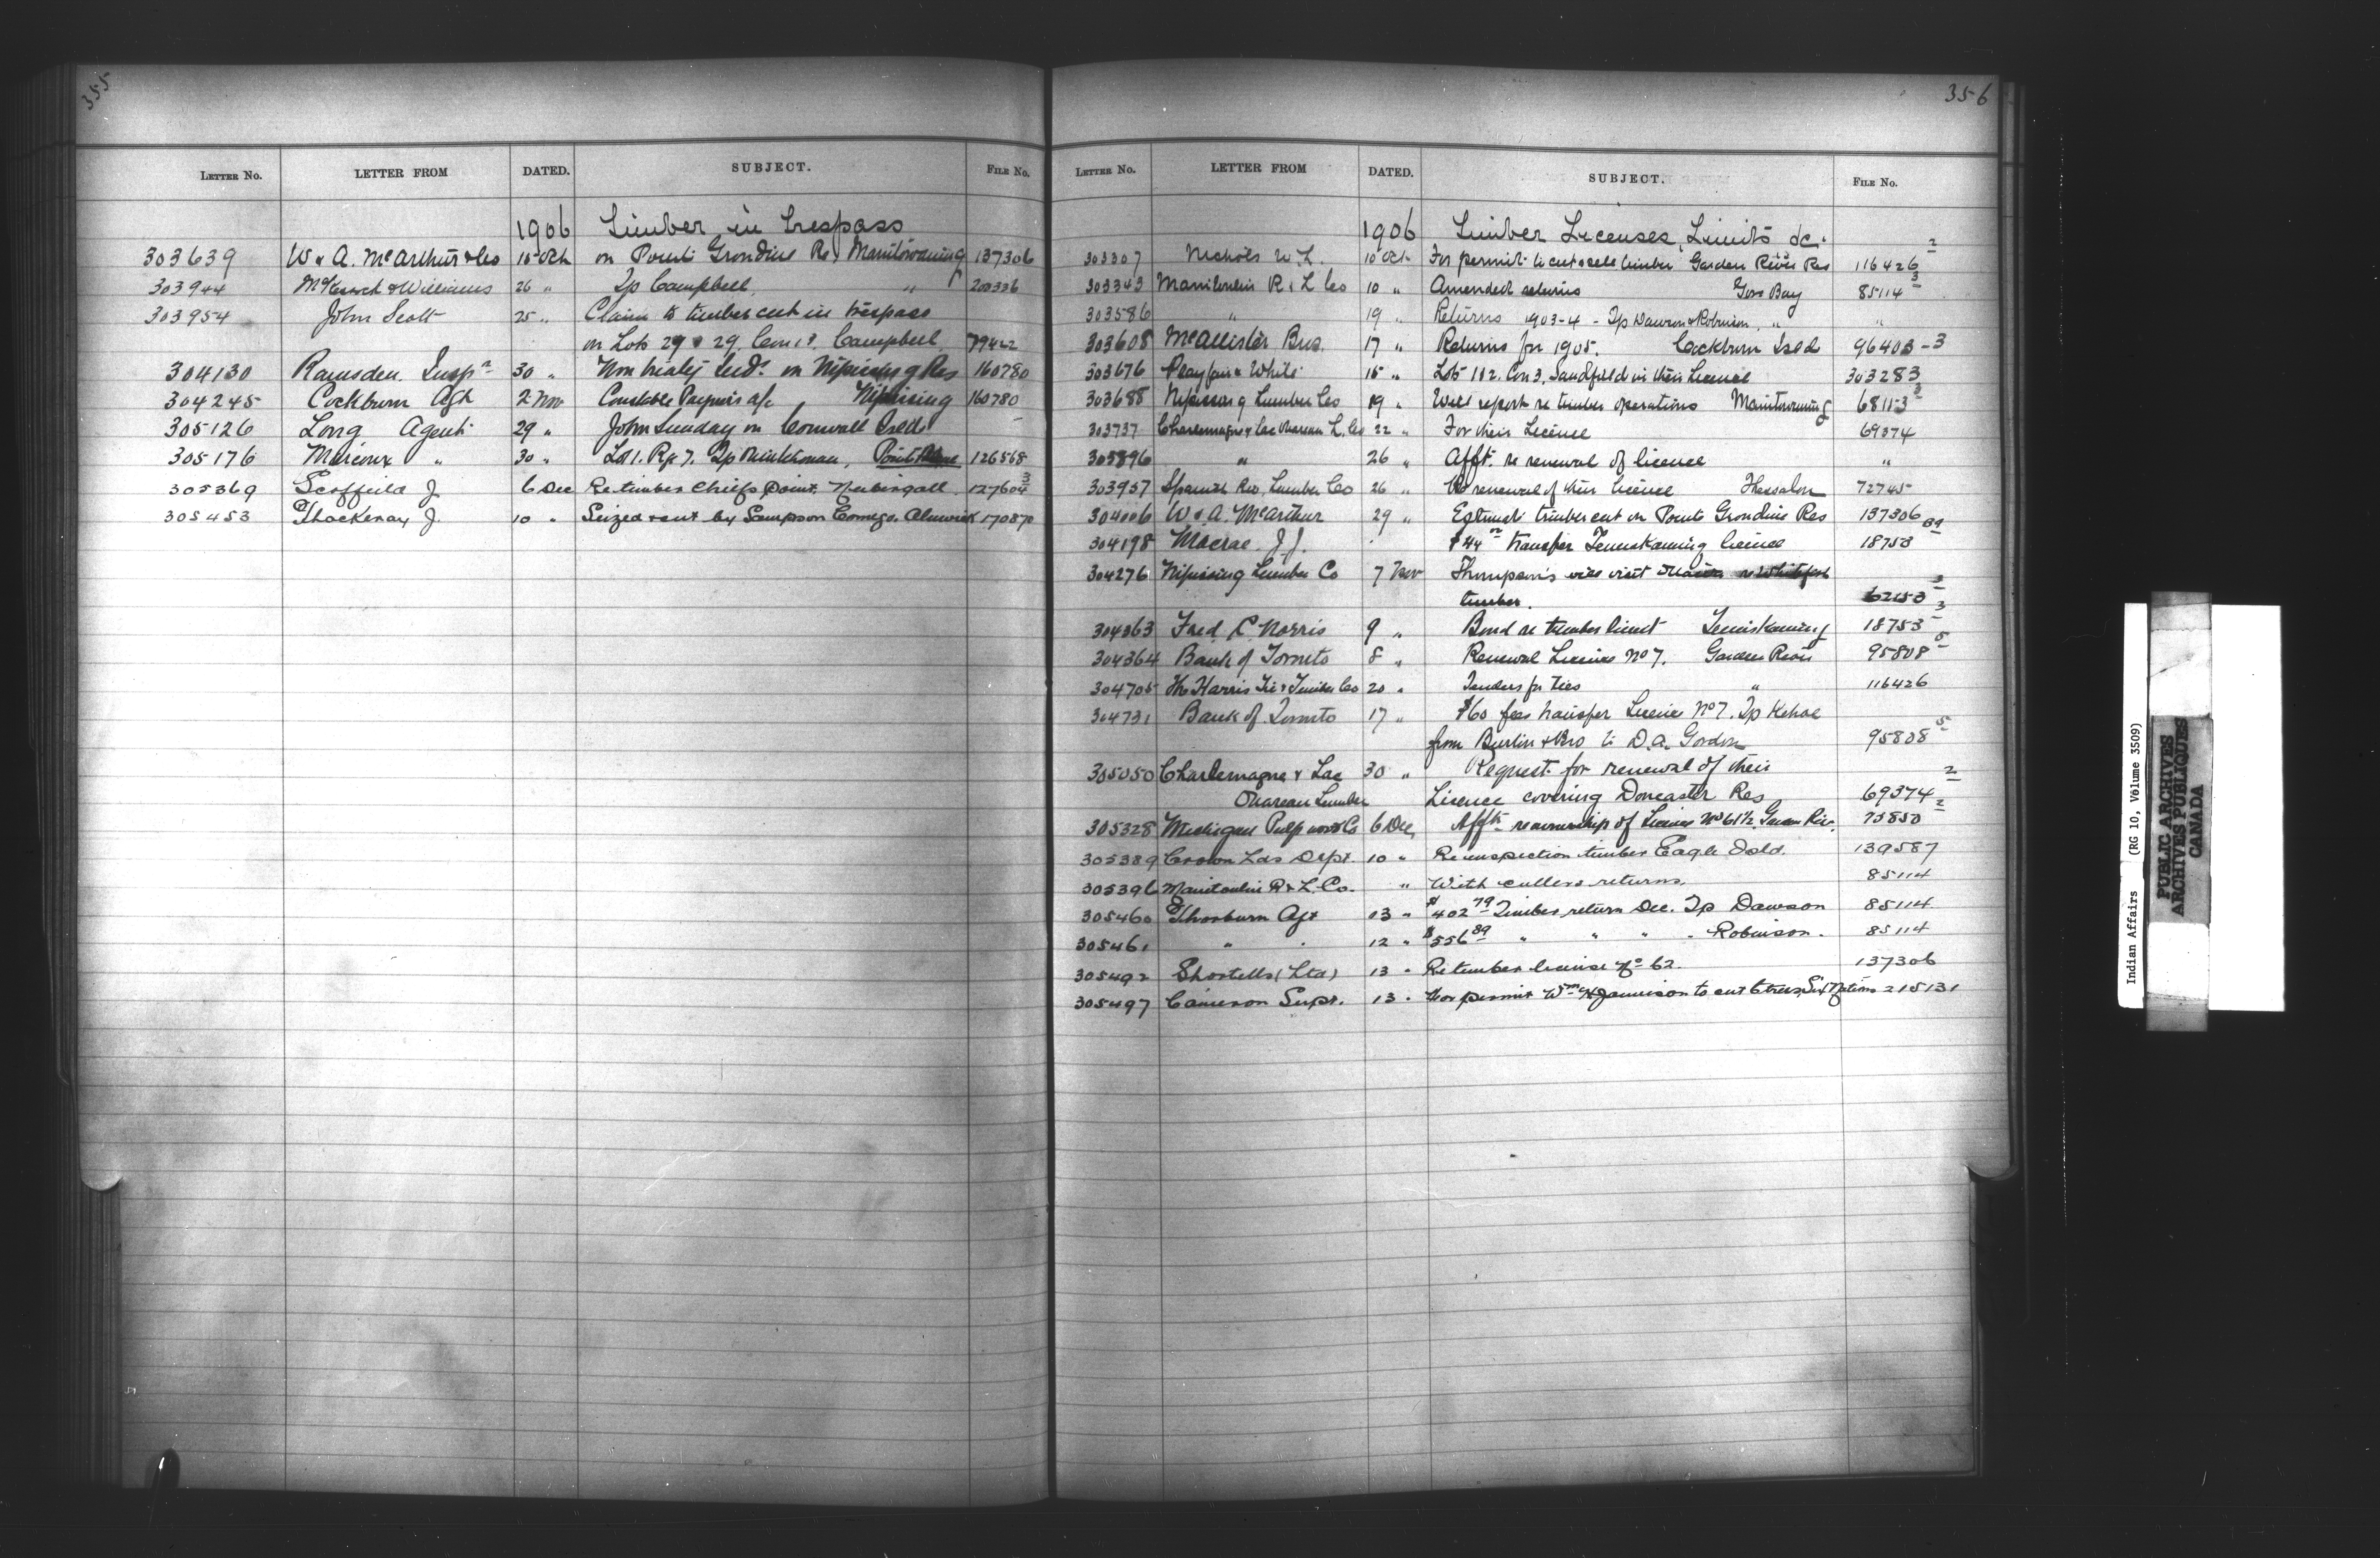 355
LETTER No. LETTER FROM DATED. SUBJECT. FILE No.
1906 Timber in Trespass
303639 W & A. McArthur & Co 15 Oct on Point Grondine Re, Manitowaning 137306
303944 & Williams 26 " Tp Campbell, " 200336
303954 John Scott 25 " Claim to timber cut in trespass
on Lots 29 & 29. Con 13. Campbell 79422
304130 Ramsden. Inspr 30 " Non treaty Inds. on Nipissing Res 160780
304245 Cockburn Agt 2 Nov Constable a/c Nipissing 160780
305126 Long Agent 29 " John Sunday on Cornwall Isld
305176 Marcoux " 30 " Lot 1. Rg 7. Tp 126568
305369 Scoffield J 6 Dec Re timber Chiefs Point. 127604 3
305453 Thackeray J. 10 " Seized & cut by Sampson Comego. Alnwick 170870
356
LETTER No. LETTER FROM DATED. SUBJECT. FILE No.
1906 Timber Licenses, Limits &c.
303307 Nichols W. L. 10 Oct For permit to cut & sell timber Garden River Res 116426 2
303343 Manitoulin R & L Co 10 " Amended returns Gore Bay 85114 3
303586 " 19 " Returns 1903-4 - Tp Dawson & Robinson, " "
303608 McAllister Bros. 17 " Returns for 1905. Cockburn Isld 96403-3
303676 Playfair & White 15 " Lots 1 & 2. Con 3, Sandfield in their License 303283
303688 Nipissing Lumber Co 19 " Will report re timber operations Manitowaning 68113 3
303737 Charlemagne & Lac Ouareau L. Co 22 " For their License 69374
303896 " 26 " Afft. re renewal of licence "
303957 Spanish Riv. Lumber Co 26 " Re renewal of their licence Thessalon 72745
304006 W & A. McArthur 29 " Estimate timber cut on Point Grondine Res 137306
304198 Macrae. J. J. $44 transfer Temiskaming licence 18753
304276 Nipissing Lumber Co 7 Nov Thompson's visit
timber. 62153 3
304363 Fred. C. Norris 9 " Bond re timber limit Temiskaming 18753 3
304364 Bank of Toronto 8 " Renewal License No 7. Garden River 95808 5
304705 The Harris Tie & Timber Co 20 " Tenders for ties " 116426
304731 Bank of Toronto 17 " $60 fees transfer License No 7. Tp Kehoe
from & Bro to D. A. Gordon 95808 5
305050 Charlemagne & Lac 30 " Request for renewal of their
Ouareau Lumber Licence covering Doncaster Res 69374 2
305328 Michigan Pulp wood Co 6 Dec, Afft re ownership of License No 61½ Garden Riv. 73850 2
305389 Crown Lds Dept. 10 " Re inspection timber Eagle Isld. 139587
305396 Manitoulin R & L. Co. " With cullers returns. 85114
305460 Thorburn Agt 13 " $402 79 Timber return Dec. Tp Dawson 85114
305461 " 12 " $556 89 " " " Robinson. 85114
305492 Shortells (Ltd) 13 " Re timber license No 62. 137306
305497 Cameron Supt. 13 " For permit Wm H Jamieson to cut trees, Six Nations 215131
Indian Affairs (RG 10, Volume 3509)
PUBLIC ARCHIVES
ARCHIVES PUBLIQUES
CANADA